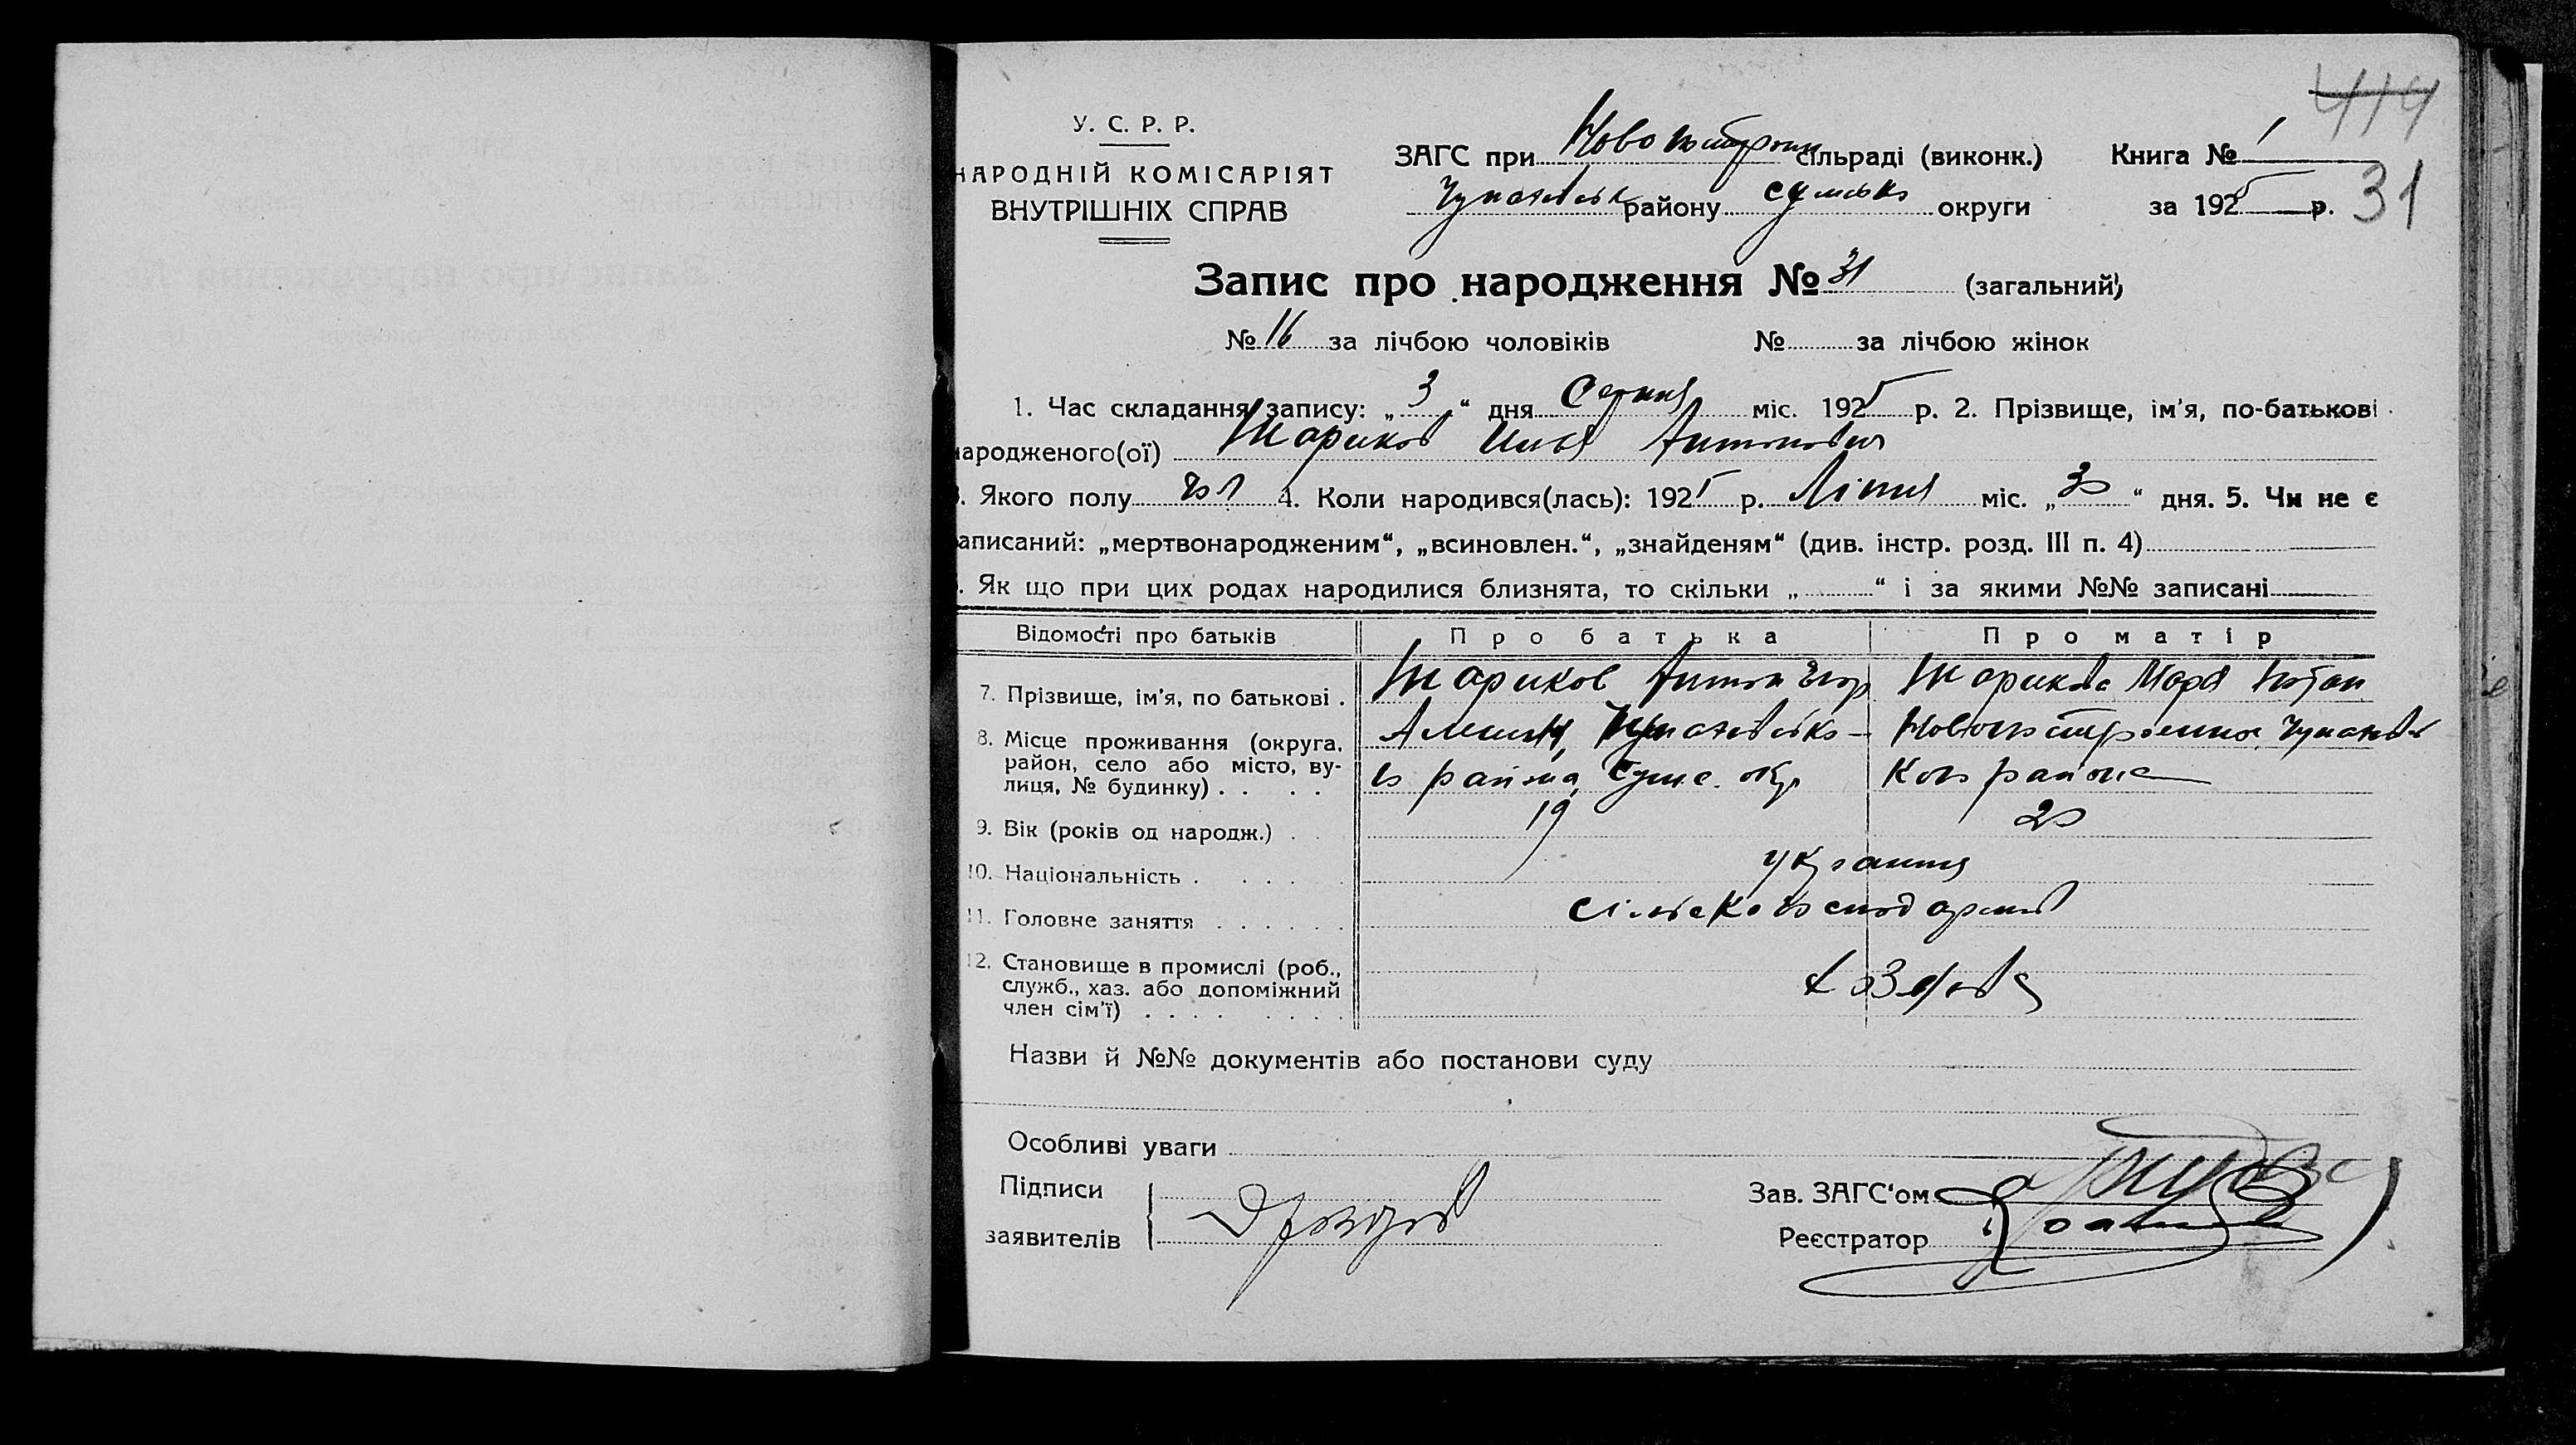 414
У. С. Р. Р.
НАРОДНІЙ КОМІСАРІЯТ
ВНУТРІШНІХ СПРАВ
ЗАГС при сільраді (виконк.) Книга № 1
району сумсько округи за 1925 р. 31
Запис про народження № 31 (загальний)
№ 16 за лічбою чоловіків № за лічбою жінок
1. Час складання запису: „ 3 “ дня Серпня міс. 1925 р. 2. Прізвище, ім'я, по-батькові
народженого(ої) Шариков Илья Антонович
3. Якого полу чол 4. Коли народився(лась): 1925 р. Ліпня міс. „ 30 “ дня. 5. Чи не є
записаний: „мертвонародженим“, „всиновлен.“, „знайденям“ (див. інстр. розд. III п. 4)
6. Як що при цих родах народилися близнята, то скільки „ “ і за якими №№ записані
Відомості про батьків Про батька Про матір
7. Прізвище, ім'я, по батькові . Шариков Антон Егор Шарикова Марія
8. Місце проживання (округа,
район, село або місто, ву-
лиця, № будинку) . . . . го района Сумс. окр кого района
9. Вік (років од народж.) . . 19 20
10. Національність . . . . . украинц
11. Головне заняття . . . . . .
12. Становище в промислі (роб.,
служб., хаз. або допоміжний
член сім'ї) . . . . . . . .
Назви й №№ документів або постанови суду
Особливі уваги
Підписи Зав. ЗАГС'ом
заявителів Реєстратор